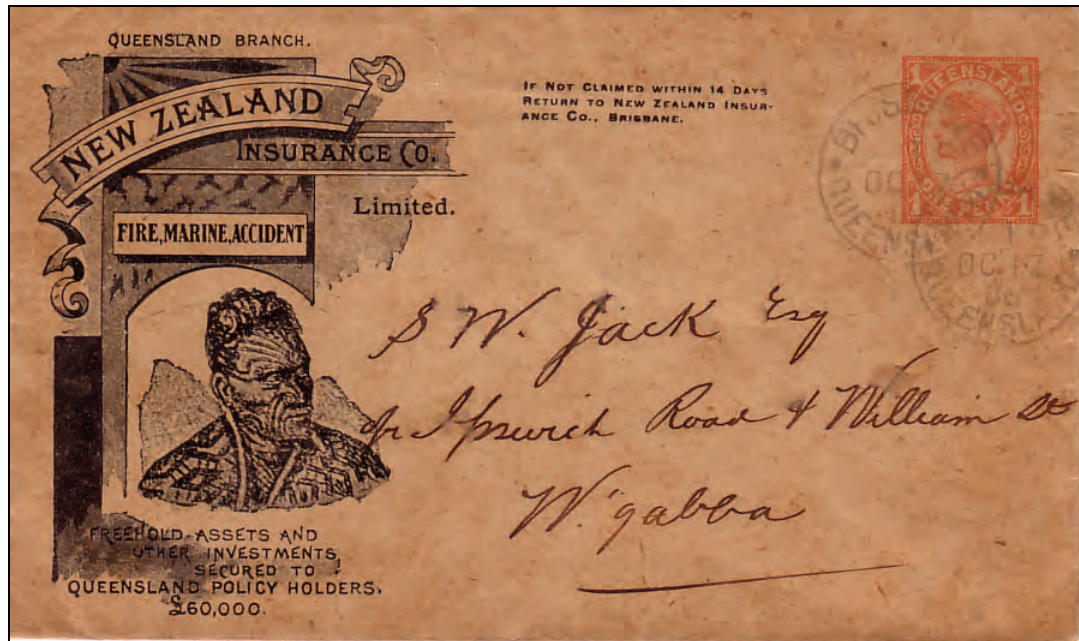 QUEENSLAND BRANCH.
NEW ZEALAND
INSURANCE CO.
Limited.
FIRE, MARINE, ACCIDENT
FREEHOLD ASSETS AND
OTHER INVESTMENTS,
SECURED TO
QUEENSLAND POLICY HOLDERS,
£60,000.
IF NOT CLAIMED WITHIN 14 DAYS
RETURN TO NEW ZEALAND INSUR-
ANCE CO., BRISBANE.
1 QUEENSLAND 1
1 ONE PENNY 1
QUEENSL
OC 17
S W. Jack Esq
Ipswich Road & William St
W'gabba